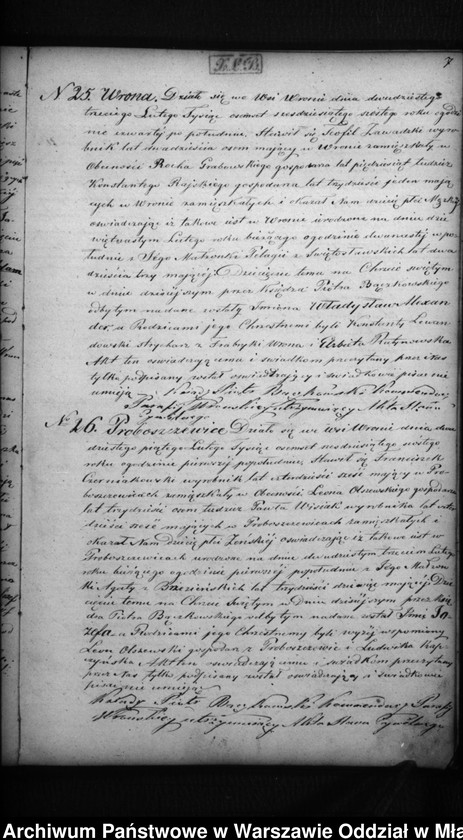 7
N 25. Wrona. Działo się we Wsi Wronie dnia dwudziestego
trzeciego Lutego Tysiąc osiemset sześdziesiątego szóstego roku o godzi
nie czwartej po południu. Stawił się Teofil Zawadzki wyro
bnik lat dwadzieścia osm mający w Wronie zamieszkały w
Obecności Rocha Grabowskiego gospodarza lat pięćdziesiąt tudzież
Konstantego Rajskiego gospodarza lat trzydzieści jeden mają
cych w Wronie zamieszkałych i okazał Nam dziecię płci Męzkiej
oświadczając iż takowe iest w Wronie urodzone na dniu dzie
więtnastym Lutego roku bieżącego o godzinie dwunastej w po
łudnie z Jego Małżonki Pelagii z Świętosławskich lat dwa
dzieścia trzy mającej. Dziecięciu temu na Chrzcie świętym
w dniu dzisiejszym przez Księdza Piotra Bączkowskiego
odbytym nadane zostały Imiona Władysław Alexan
der, a Rodzicami jego Chrzestnemi byli Konstanty Lewan
dowski strycharz z Fabryki Wrona i Elżbieta
Akt ten oświadczającemu i świadkom przeczytany przez Nas
tylko podpisany został oświadczający i świadkowie pisać nie
umieją. Xiądz Piotr Bączkowski Komendarz
Parafij Wrońskiej utrzymujący Akta Stanu
Cywilnego
N. 26. Proboszewice Działo się we Wsi Wronie dnia dwu
dziestego piątego Lutego Tysiąc osiemset sześdziesiątego szóstego
roku o godzinie pierwszej po południu. Stawił się Franciszek
Czerniakowski wyrobnik lat sześć mający w Pro
boszewicach zamieszkały w Obecności Leona Olszewskiego gospodarza
lat trzydzieści osm tudzież Pawła wyrobnika lat
dzieści sześć mających w Proboszewicach zamieszkałych i
okazał Nam dziecię płci Żeńskiej oświadczając iż takowe iest w
Proboszewicach urodzone na dniu dwudziestym trzecim Lutego
roku bieżącego o godzinie pierwszej po południu z Jego Małżon
ki Agaty z Brzezińskich lat trzydzieści dziewięć mającej. Dzie
cięciu temu na Chrzcie Świętym w dniu dzisiejszym przez Xię
dza Piotra Bączkowskiego odbytym nadane zostało Imię Jó
zefa, a Rodzicami jego Chrzestnemi byli wyżej wspomniony
Leon Olszewski gospodarz z Proboszewic i Ludwika
Akt ten oświadczającemu i świadkom przeczytany
przez Nas tylko podpisany został oświadczający i świadkowie
pisać nie umieją
Xiądz Piotr Bączkowski Komendarz Parafij
Wrońskiej utrzymujący Akta Stanu Cywilnego
Archiwum Państwowe w Warszawie Oddział w Mła